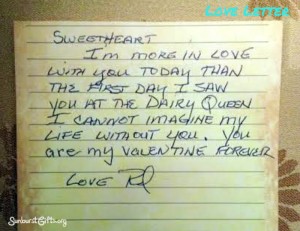 Love Letter
Sweetheart
I'm more in love
with you today than
the first day I saw
you at the Dairy Queen
I cannot imagine my
life without you. You
are my valentine forever
Love
SunburstGifts.org